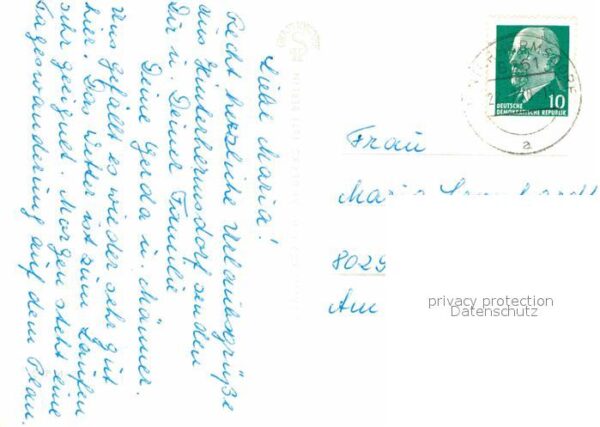 Liebe Maria!
Recht herzliche Urlaubsgrüße
aus Hinterhermsdorf senden
Dir u. Deiner Familie
Deine Gerda u. Männer.
Uns gefällt es wieder sehr gut
hier. Das Wetter ist zum Laufen
sehr geeignet. Morgen steht eine
Tageswanderung auf dem Plan.
DEUTSCHE
DEMOKRATISCHE REPUBLIK
10
a
Frau
Maria
8029
Am
privacy protection
Datenschutz